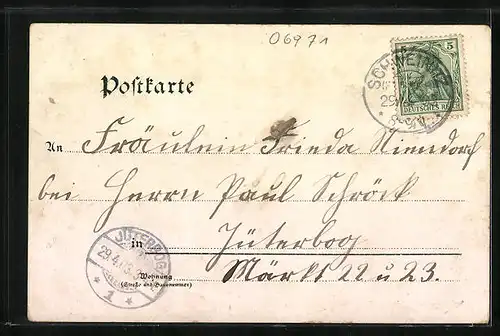 06971
5
DEUTSCHES REICH
SCHWEINITZ
29
Postkarte
An Fräulein Frieda Niendorf
bei Herrn Paul Schröck
in Jüterbog
Markt 22 u 23.
Wohnung
(Straße und Hausnummer)
JÜTERBOG
29.4.
* 1 *